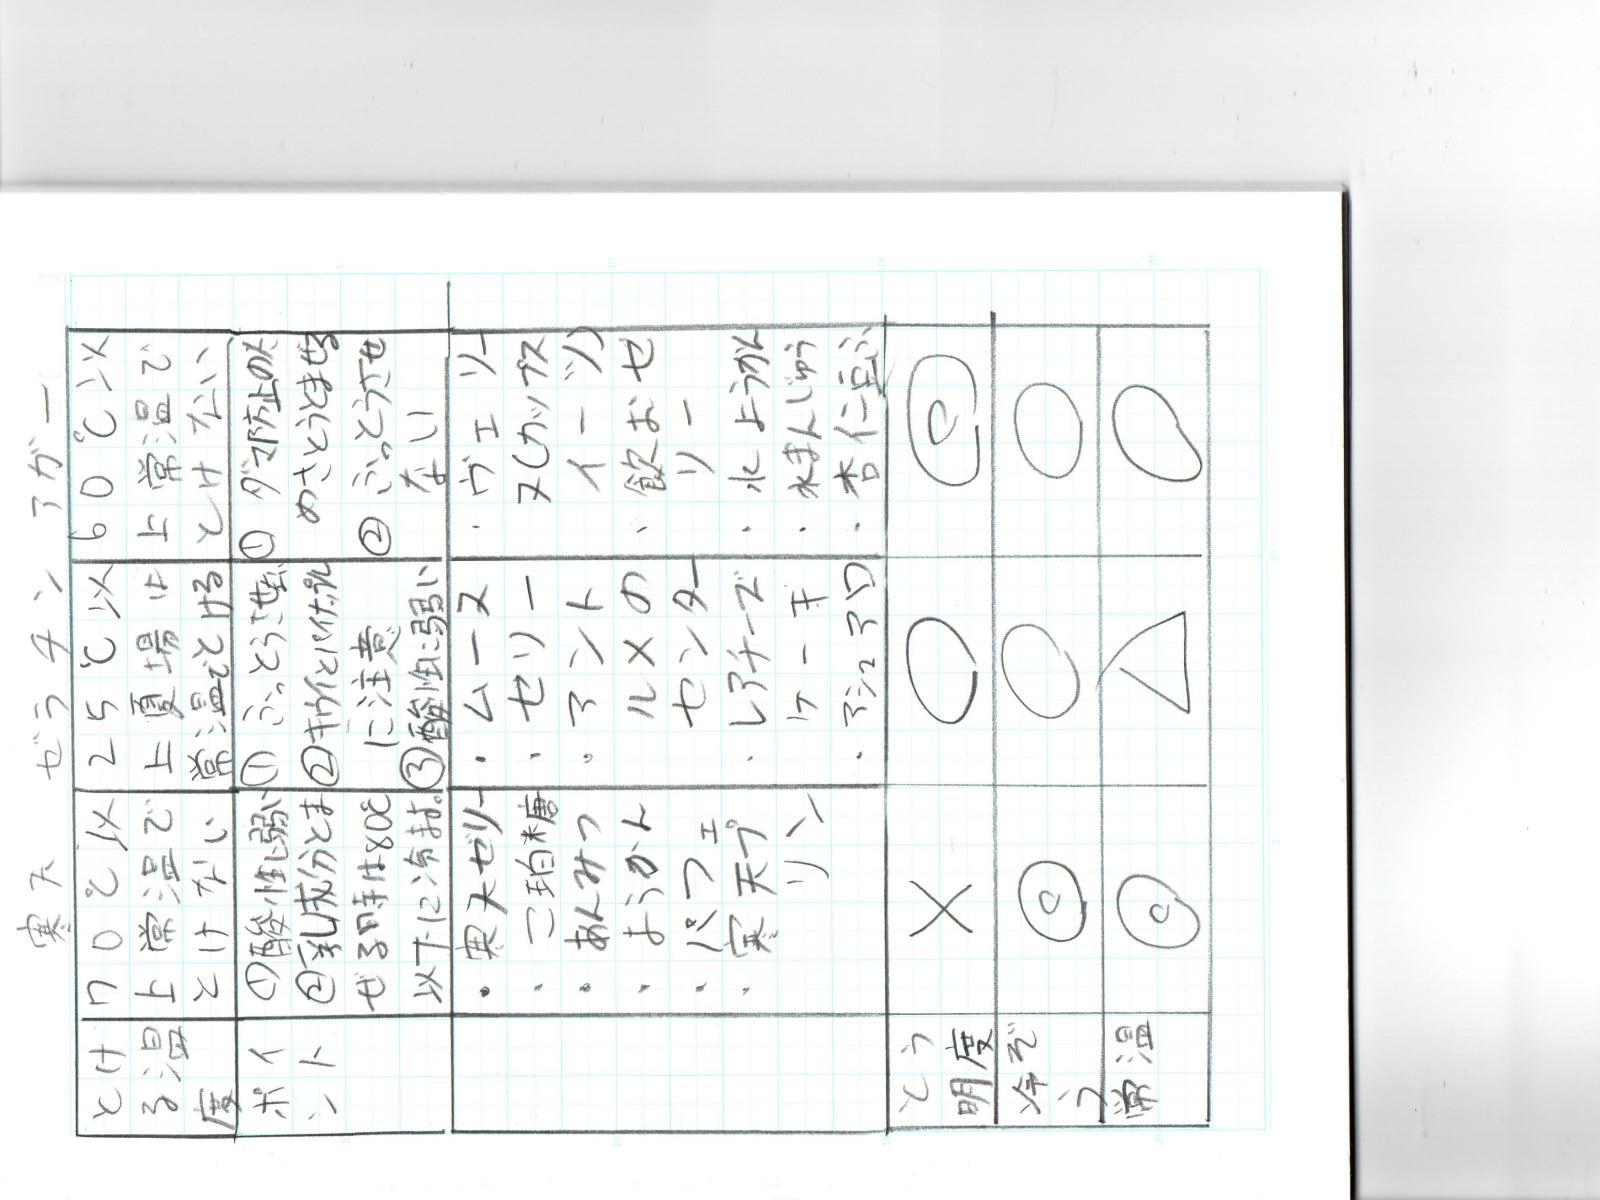 寒天　ゼラチン　アガー
とけ
る温
度
70℃以
上常温で
とけない
25℃以
上夏場は
常温でとける
60℃以
上常温で
とけない
ポイ
ント
①酸性弱い
②乳成分とま
ぜる時は80℃
以下に冷ます。
①ふっとうさせない
②キウイとパイナップル
に注意
③酸性に弱い
①ダマ防止のた
めさとうとまぜる
②ふっとうさせ
ない
・寒天ゼリー
・こ珀糖
・あんみつ
・ようかん
・パフェ
・寒天プ
リン
・ムース
・ゼリー
・アント
ルメの
センター
・レアチーズ
ケーキ
・マシュマロ
・ヴェリー
ヌ(カップス
イーツ)
・飲むゼ
リー
・水ようかん
・水まんじゅう
・杏仁豆ふ
とう
明度
×
○
◎
冷ぞ
う
◎
○
○
常温
◎
△
○